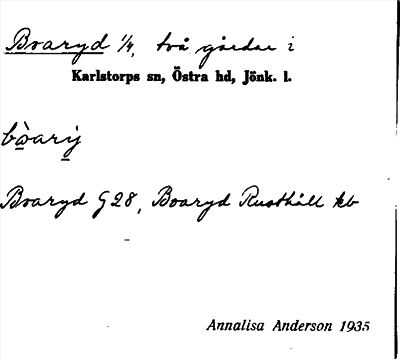 Boaryd 1/4, två gårdar i
Karlstorps sn, Östra hd, Jönk. l.
bòarij
Boaryd G28, Boaryd Rusthåll kb
Annalisa Anderson 1935